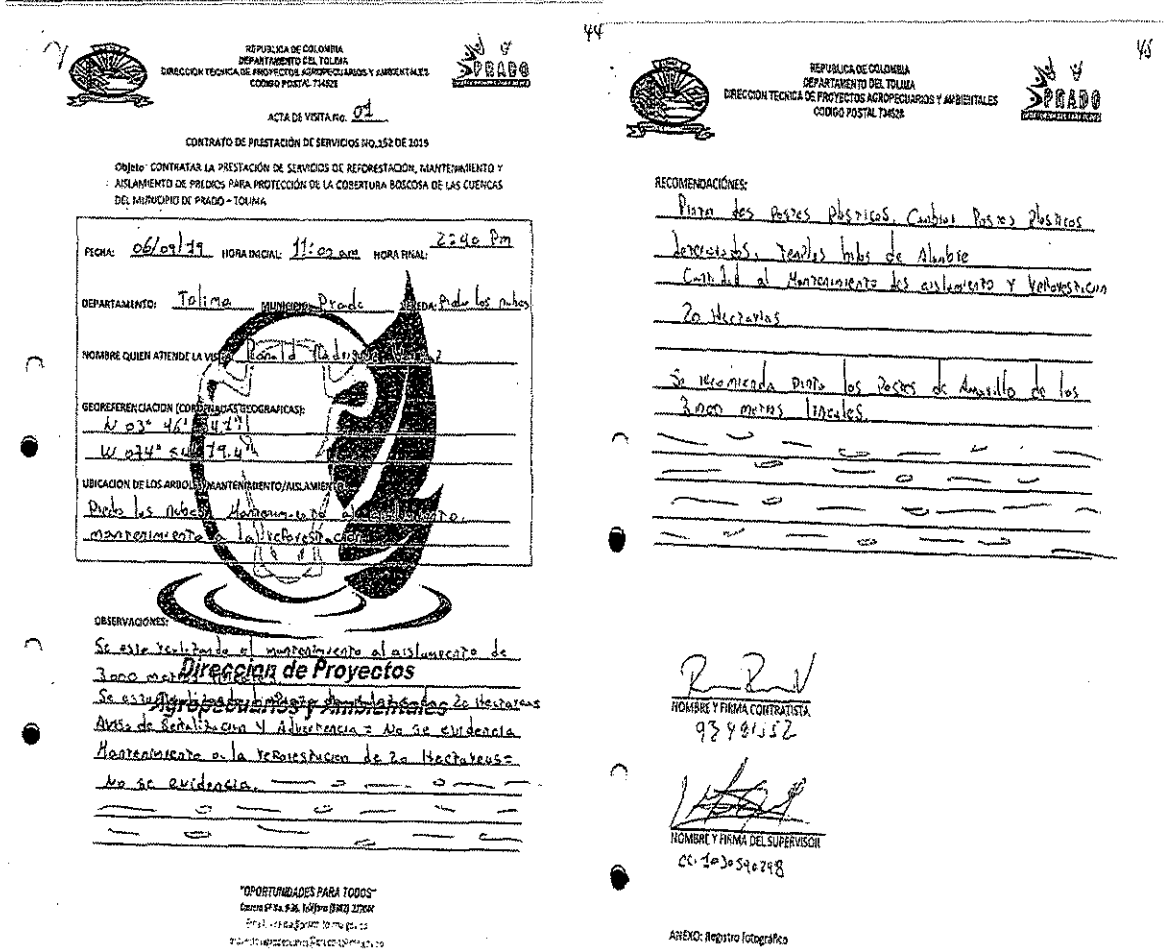 44
REPUBLICA DE COLOMBIA
DEPARTAMENTO DEL TOLIMA
DIRECCION TECNICA DE PROYECTOS AGROPECUARIOS Y AMBIENTALES
CODIGO POSTAL 734528
PRADO
ACTA DE VISITA No. 01
CONTRATO DE PRESTACIÓN DE SERVICIOS NO.152 DE 2019
Objeto: CONTRATAR LA PRESTACIÓN DE SERVICIOS DE REFORESTACIÓN, MANTENIMIENTO Y
AISLAMIENTO DE PREDIOS PARA PROTECCIÓN DE LA COBERTURA BOSCOSA DE LAS CUENCAS
DEL MUNICIPIO DE PRADO – TOLIMA
FECHA: 06/09/19 HORA INICIAL: 11:02 am HORA FINAL: 2:40 Pm
DEPARTAMENTO: Tolima MUNICIPIO: Prado VEREDA: Predio los nubes
NOMBRE QUIEN ATIENDE LA VISITA: Ronald
GEOREFERENCIACION (CORDENADAS GEOGRAFICAS):
N 03° 46'
W 074°
UBICACIÓN DE LOS ARBOLES/MANTENIMIENTO/AISLAMIENTO:
Predio los nubes Mantenimiento
mantenimiento a la reforestación
OBSERVACIONES:
Se esta realizando el mantenimiento al aislamiento de
3000 metros
Direccion de Proyectos
Agropecuarios y Ambientales
20 Hectareas
Aviso de Señalizacion y Advertencia = No se evidencia
Mantenimiento a la reforestacion de 20 Hectareas=
No se evidencia.
"OPORTUNIDADES PARA TODOS"
45
REPUBLICA DE COLOMBIA
DEPARTAMENTO DEL TOLIMA
DIRECCION TECNICA DE PROYECTOS AGROPECUARIOS Y AMBIENTALES
CODIGO POSTAL 734528
PRADO
RECOMENDACIÓNES:
Postes Plasticos, Cambiar Postes Plasticos
hilos de Alambre
al Mantenimiento des aislamiento y reforestacion
20 Hectarias
Se recomienda Pinta los Postes de Amarillo de los
3000 metros lineales.
NOMBRE Y FIRMA CONTRATISTA
NOMBRE Y FIRMA DEL SUPERVISOR
CC. 1030590298
ANEXO: Registro Fotográfico